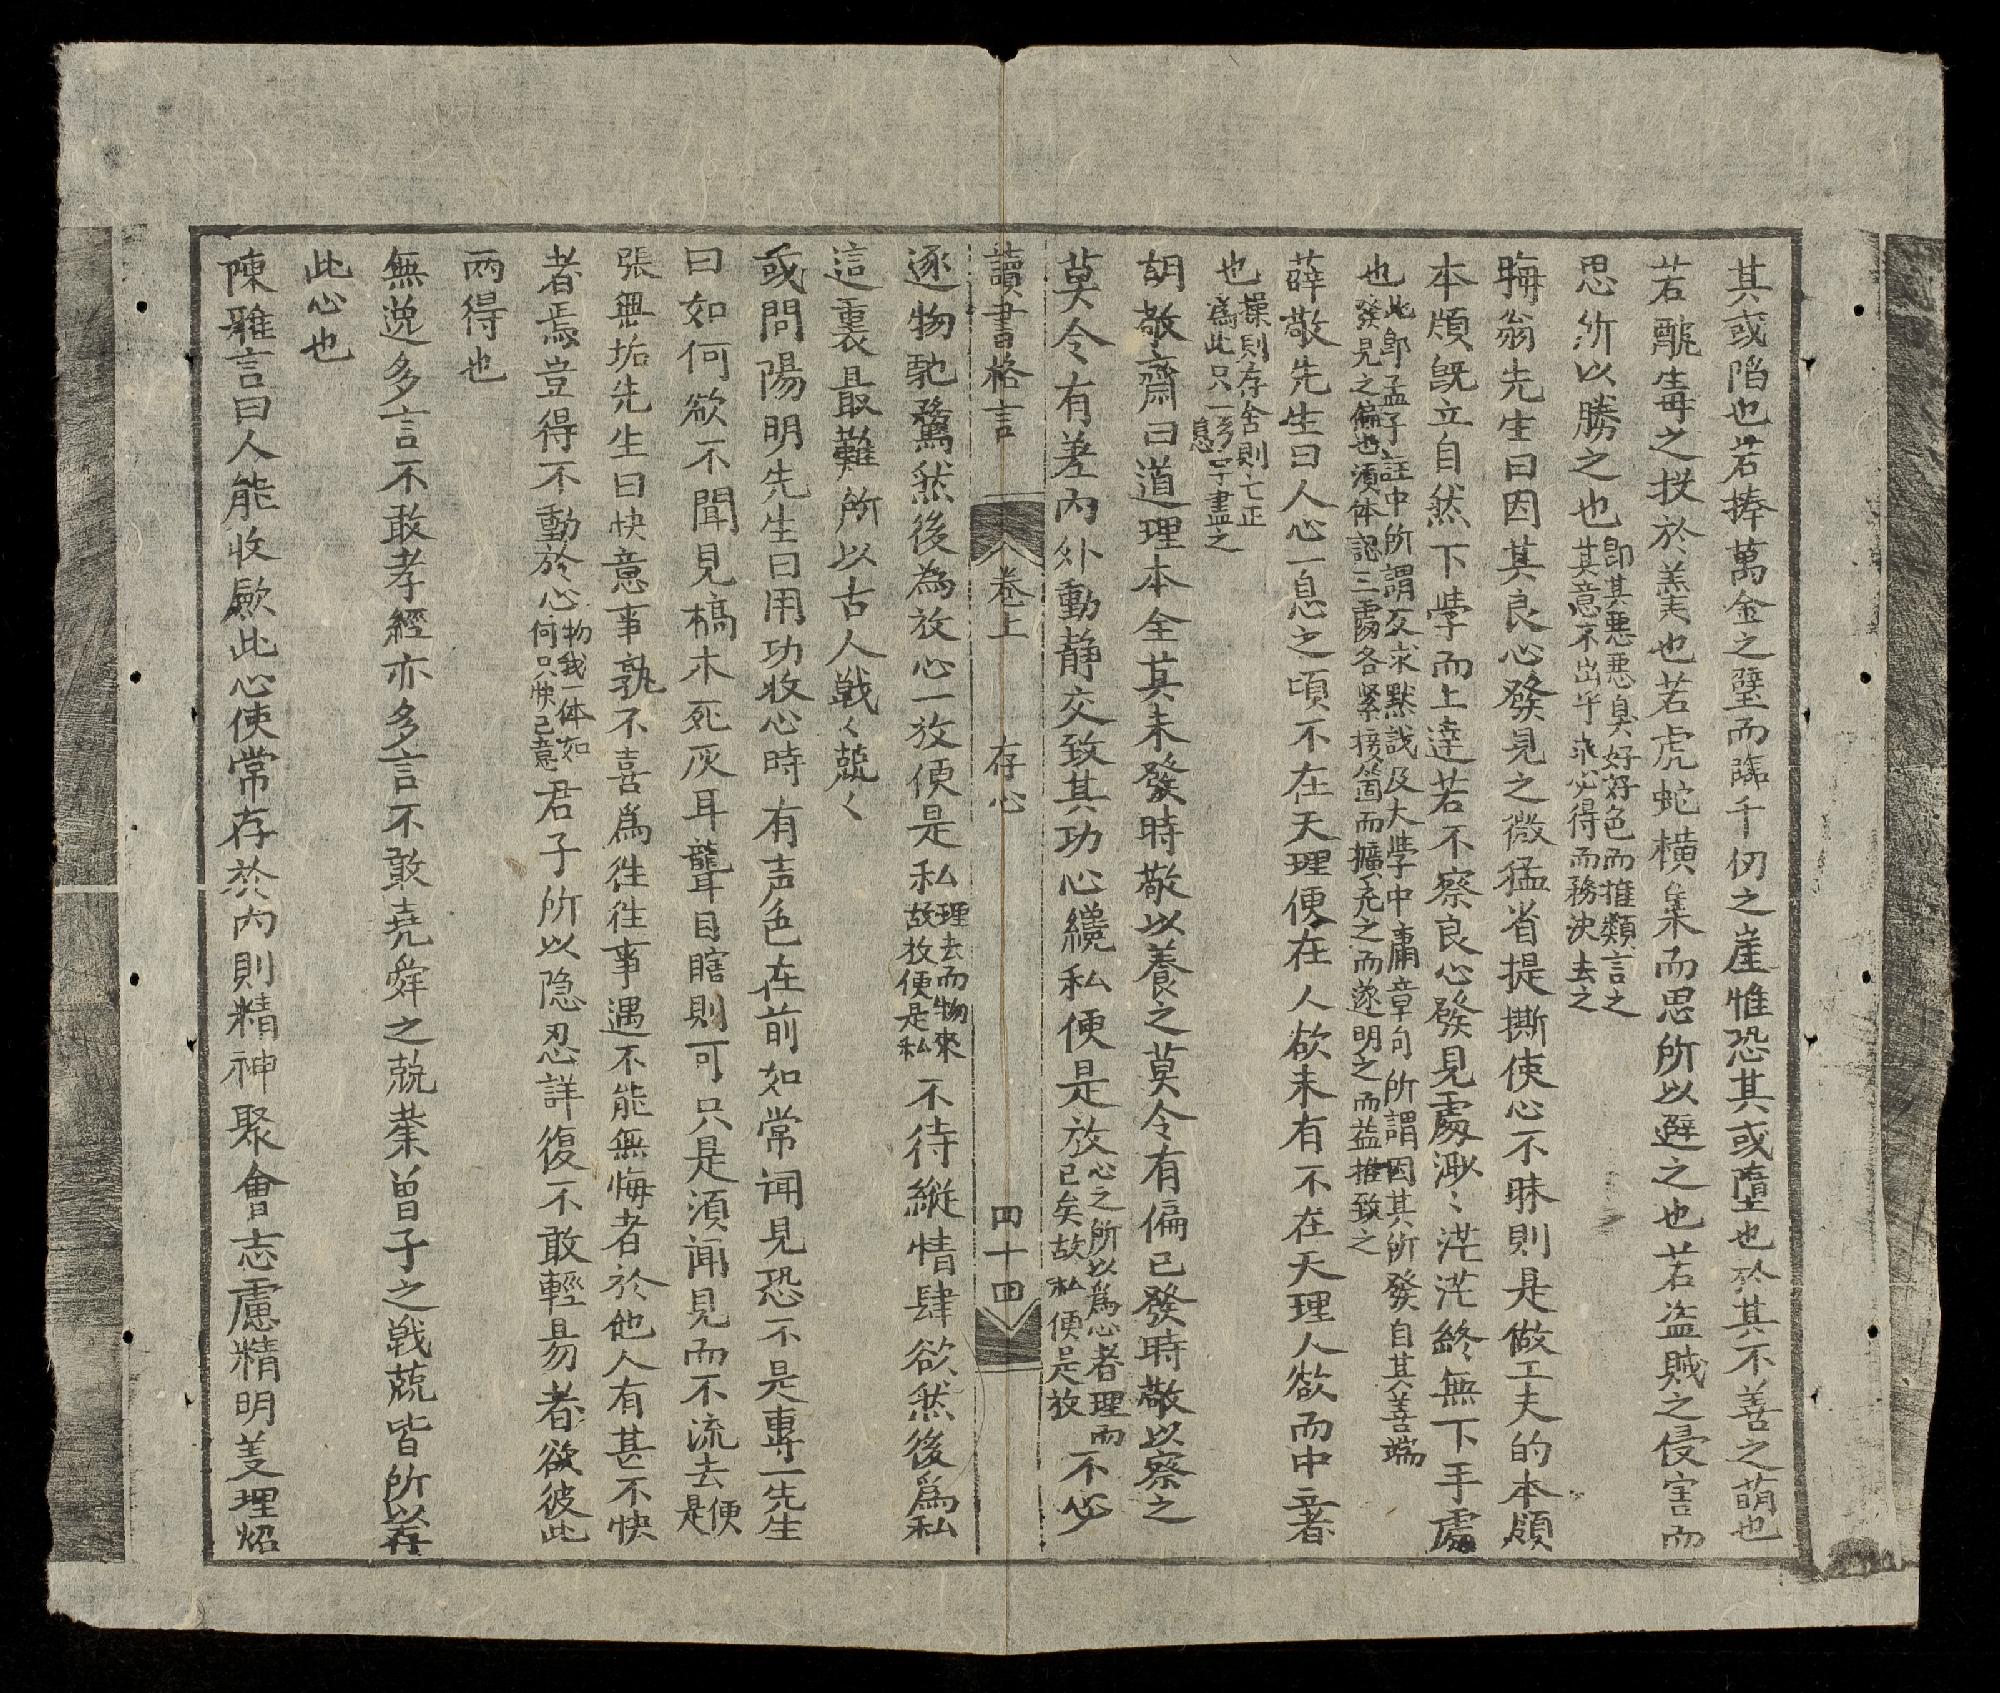 其或陷也若捧萬金之璧而臨千仞之崖惟恐其或墮也於其不善之萌也
若酖毒之投於羹也若虎蛇橫集而思所以避之也若盜賊之侵害而
思所以勝之也即其惡惡臭好好色而推類言之其意不出乎求必得而務決去之
晦翁先生曰因其良心發見之微猛省提撕使心不昧則是做工夫的本頭
本頭既立自然下學而上達若不察良心發見處渺〻茫茫終無下手處
也此即孟子註中所謂反求默識及大學中庸章句所謂因其所發自其善端發見之偏也須体認三處各紧接箇而擴充之而遂明之而益推致之
薛敬先生曰人心一息之頃不在天理便在人欲未有不在天理人欲而中立者
也操則存舍則亡正為此只一息字盡之
胡敬齋曰道理本全其未發時敬以養之莫令有偏已發時敬以察之
莫令有差內外動静交致其功心纔私便是放心之所以為心者理而已矣故私便是放不必
讀書格言 卷上 存心 四十四
逐物馳騖然後為放心一放便是私理去而物來故放便是私不待縱情肆欲然後爲私
這裏最難所以古人戰〻兢〻
或問陽明先生曰用功收心時有声色在前如常闻見恐不是專一先生
曰如何欲不聞見槁木死灰耳聾目瞎則可只是須闻見而不流去便是
張無垢先生曰快意事孰不喜爲徃徃事過不能無悔者於他人有甚不快
者焉豈得不動於心物我一体如何只快己意君子所以隐忍詳復不敢輕易者欲彼此
兩得也
無逸多言不敢孝經亦多言不敢堯舜之兢業曾子之戰兢皆所以存
此心也
陳雅言曰人能收歛此心使常存於內則精神聚會志慮精明義理炤